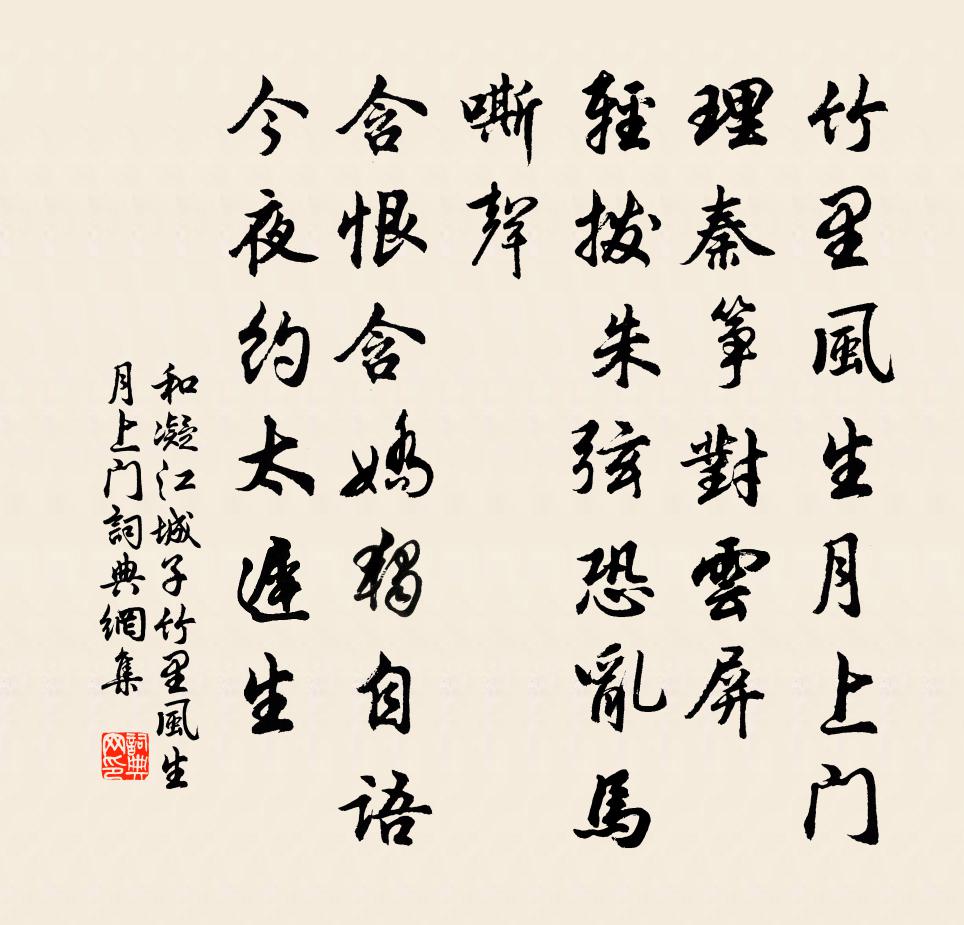 竹里風生月上门
理秦筝對雲屏
輕撥朱弦恐亂馬
嘶聲
含恨含嬌獨自語
今夜约太遲生
和凝江城子竹里風生
月上门詞典網集
詞典网印